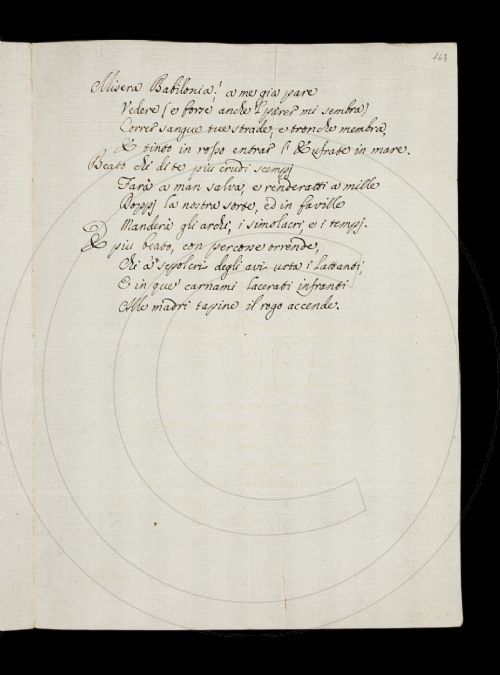 163
Misera Babilonia! a me già pare
Vedere (e forse anche l'parer mi sembra)
Correr sangue tue strade, e tronche membra,
E tinto in rosso entrar l'Eufrate in mare.
Beato chi di te più crudi scempj
Farà a man salva, e renderatti a mille
Doppj la nostra sorte, ed in faville
Manderà gli archi, i simolacri, e i tempj.
E più beato, con percosse orrende,
Chi a' sepolcri degli avi urta i lattanti,
E in que' carnami lacerati infranti
Alle madri tapine il rogo accende.